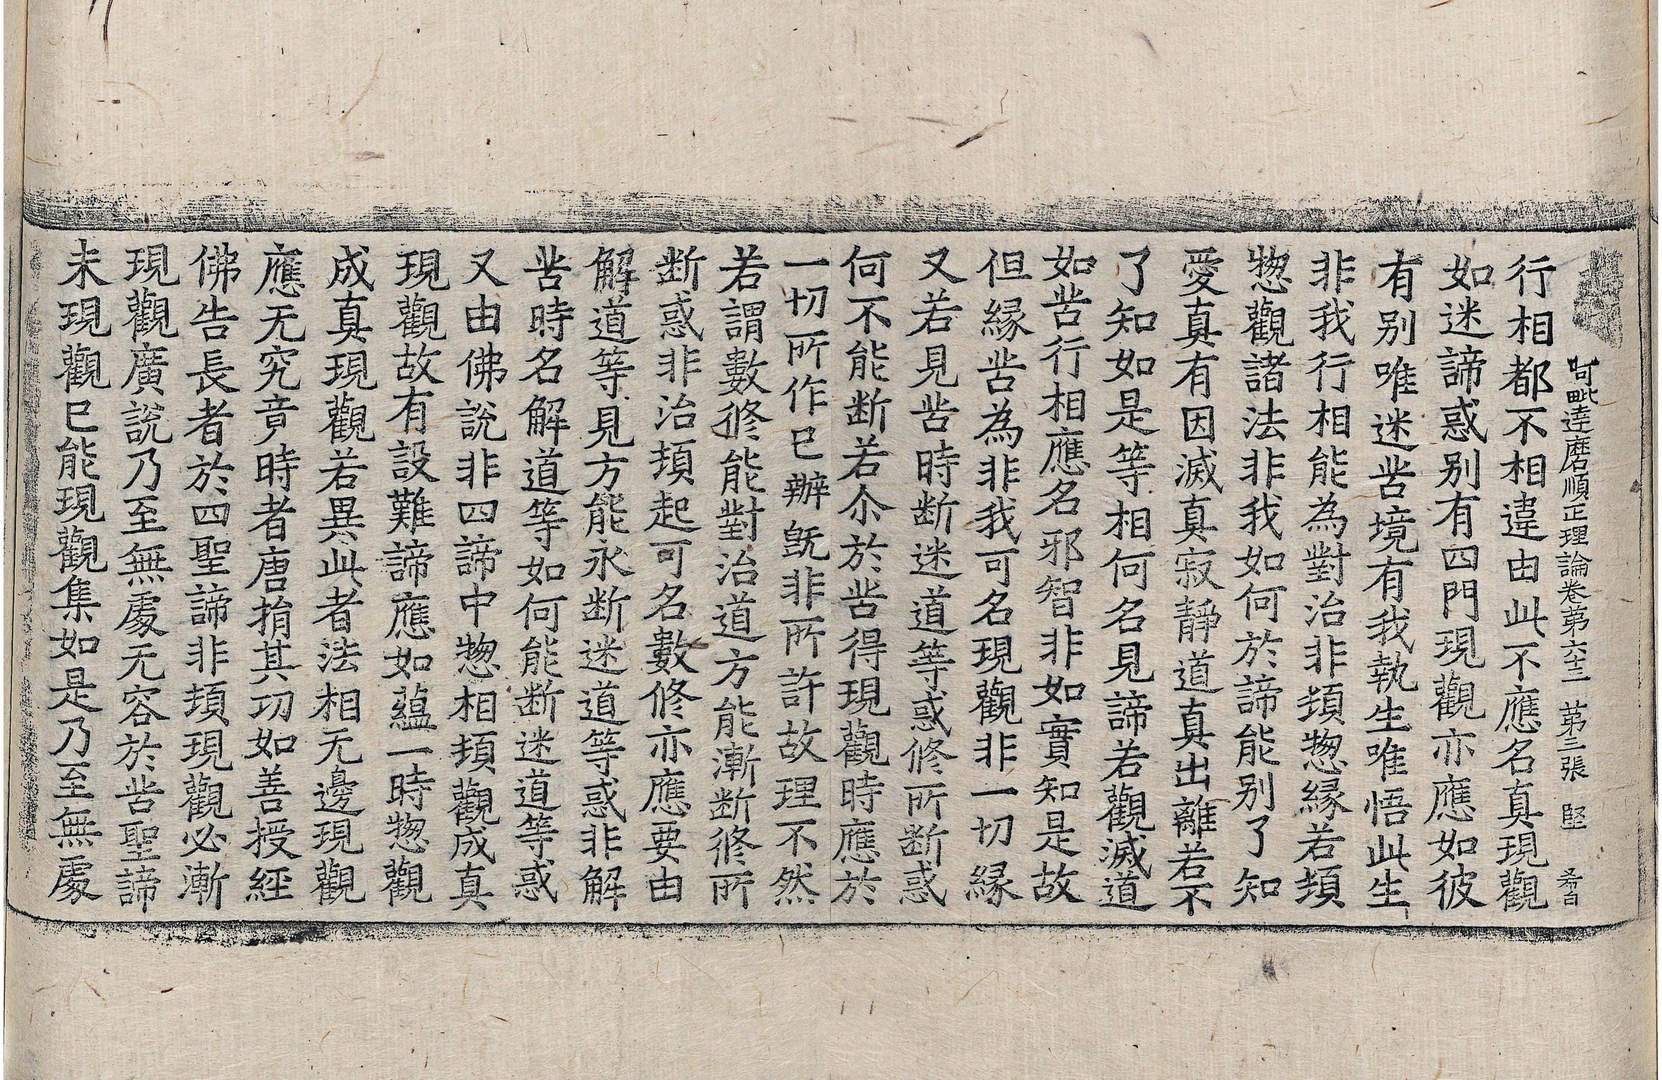 阿毗達磨順正理論卷第六十三 第三張 堅 希白
行相都不相違由此不應名真現觀
如迷諦惑別有四門現觀亦應如彼
有別唯迷苦境有我執生唯悟此生
非我行相能為對治非頓惣緣若頓
惣觀諸法非我如何於諦能別了知
愛真有因滅真寂靜道真出離若不
了知如是等相何名見諦若觀滅道
如苦行相應名邪智非如實知是故
但緣苦為非我可名現觀非一切緣
又若見苦時断迷道等惑修所断惑
何不能断若尒於苦得現觀時應於
一切所作已辦旣非所許故理不然
若謂數修能對治道方能漸断修所
断惑非治頓起可名數修亦應要由
解道等見方能永断迷道等惑非解
苦時名解道等如何能断迷道等惑
又由佛說非四諦中惣相頓觀成真
現觀故有設難諦應如蘊一時惣觀
成真現觀若異此者法相无邊現觀
應无究竟時者唐捐其功如善授經
佛告長者於四聖諦非頓現觀必漸
現觀廣說乃至無處无容於苦聖諦
未現觀已能現觀集如是乃至無處